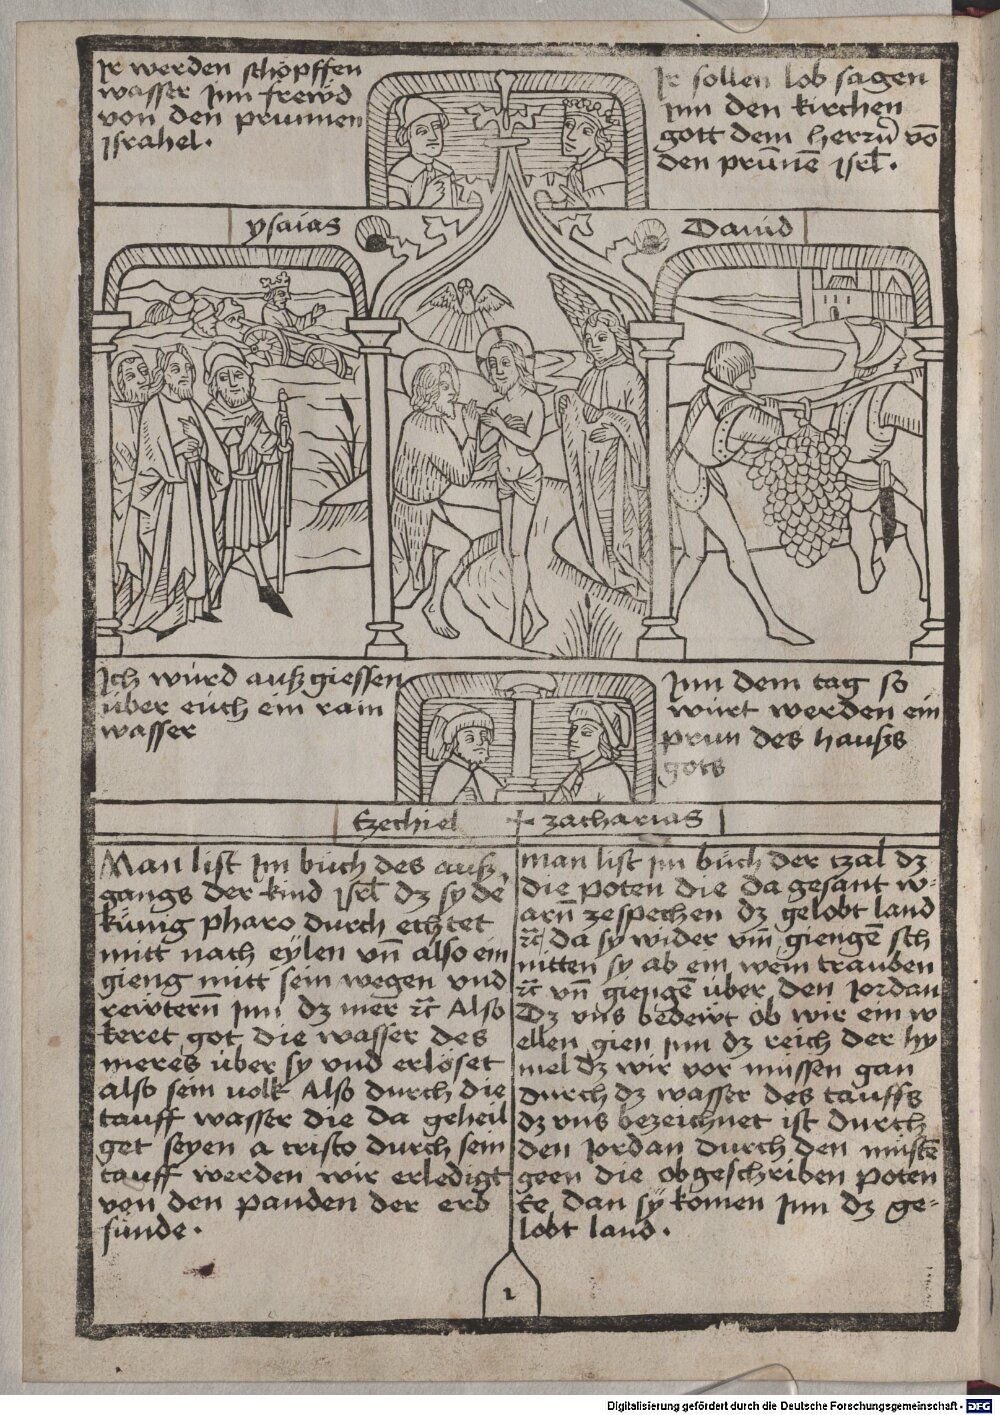 Ir werden schöpffen
wasser Jnn frewd
von den prunnen
jsrahel.
Ir sollen lob sagen
jnn den kirchen
gott dem herrn vō
den prūnnē jsrl.
ysaias
Dauid
Ich würd außgiessen
über euch ein rain
wasser
Jnn dem tag so
würt werden ein
prun des haußs
gots
Ezechiel
zacharias
Man list jm büch des auß
gangs der kind jsrl dz sy dē
küng pharo durch echtet
mitt nach eÿlen vn̄ also ein
gieng mitt sein wegen vnd
rewtern̄ jnn dz mer ꝛc̄ Also
keret got die wasser des
meres über sy vnd erlöset
also sein volk Also durch die
tauff wasser die da geheil
get seyen a cristo durch sein
tauff werden wir erledigt
von den panden der erb
sünde.
man list jm büch der tzal dz
die poten die da gesant w
arn̄ zespechen dz gelobt land
ꝛc̄ da sy wider vm̄ giengē sch
nitten sy ab ein wein trauben
ꝛc̄ vn̄ giengē über den Jordan
Dz vns bedewt ob wir ein w
ellen gien jnn dz reich der hy
mel dz wir vor müssen gan
durch dz wasser des tauffs
dz vns bezeichnet ist durch
den Jordan durch den müstē
geen die obgeschriben poten
ēe dan sÿ komen jnn dz ge=
lobt land.
1
Digitalisierung gefördert durch die Deutsche Forschungsgemeinschaft - DFG